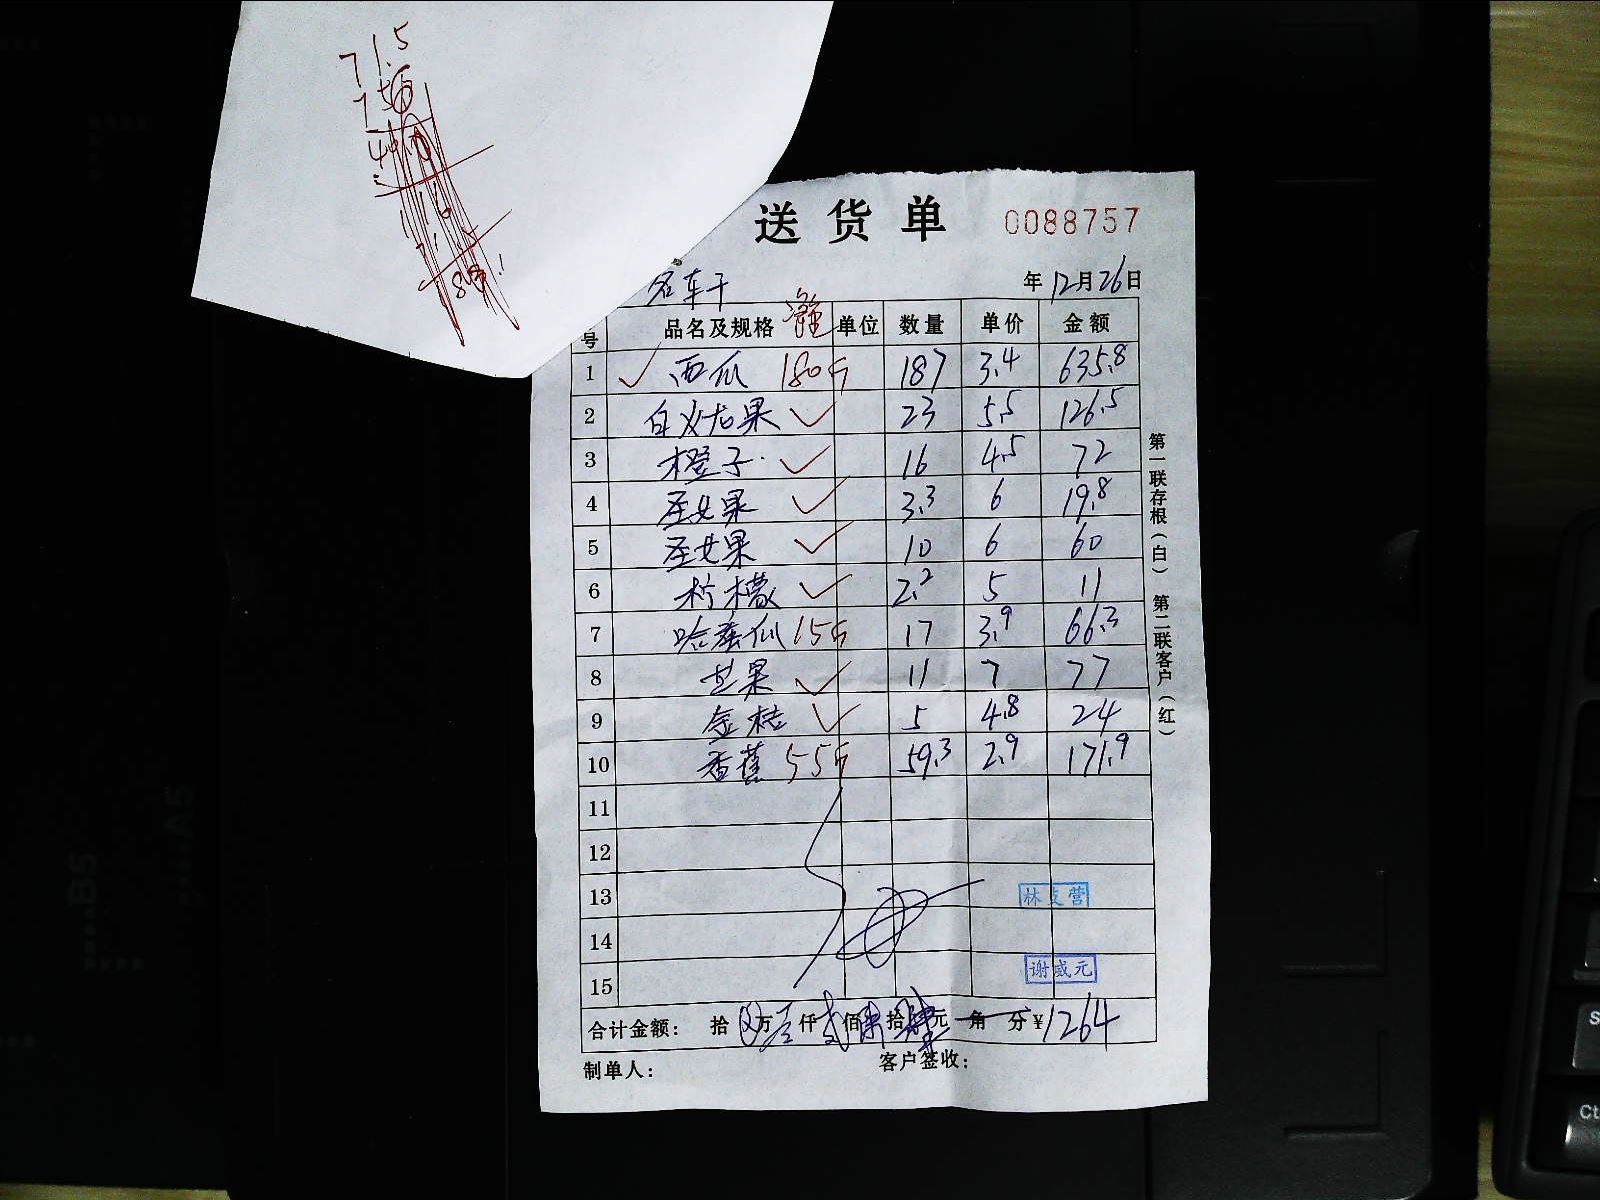 71.5
送货单 0088757
年12月26日
号 品名及规格 单位 数量 单价 金额
1 西瓜 180斤 187 3.4 635.8
2 白火龙果 23 5.5 126.5
3 橙子 16 4.5 72
4 圣女果 3.3 6 19.8
5 圣女果 10 6 60
6 柠檬 2.2 5 11
7 哈密瓜 15斤 17 3.9 66.3
8 芒果 11 7 77
9 金桔 5 4.8 24
10 香蕉 55斤 59.3 2.9 171.9
11
12
13 林支营
14
15 谢威元
合计金额: 拾 万壹仟贰佰陆拾肆元 角 分 ¥1264
制单人: 客户签收:
第一联存根(白) 第二联客户(红)
B5
A5
Ct